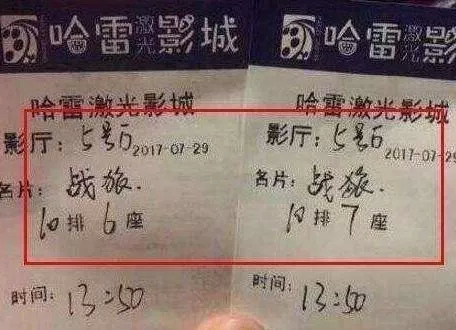 哈雷激光影城
哈雷激光影城
影厅：5号 2017-07-29
名片：战旅.
10排6座
时间：13:50
哈雷激光影
哈雷激光影城
影厅：5号 2017-07-29
名片：战旅.
10排7座
时间：13:50